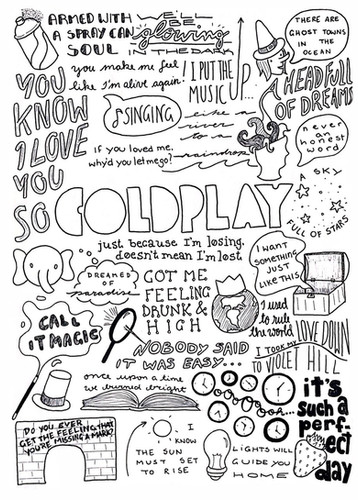 ARMED WITH
A SPRAY CAN
SOUL
WE'LL
BE
glowing
IN THE DARK
THERE ARE
GHOST TOWNS
IN THE
OCEAN
YOU
KNOW
I LOVE
YOU
SO
you make me feel
like I'm alive again!
I PUT THE
MUSIC UP...
A HEAD FULL
OF DREAMS
SINGING
like a
river
to a
raindrop
never
an
honest
word
if you loved me,
why'd you let me go?
A SKY
FULL OF STARS
COLDPLAY
just because I'm losing,
doesn't mean I'm lost
I WANT
SOMETHING
JUST
LIKE THIS
DREAMED
OF
paradise
GOT ME
FEELING
DRUNK &
HIGH
I used
to rule
the world
CALL
IT MAGIC
I TOOK MY
LOVE DOWN
TO VIOLET HILL
NOBODY SAID
IT WAS EASY...
once upon a time
we burned bright
it's
such a
perf-
ect
day
DO YOU EVER
GET THE FEELING THAT
YOU'RE MISSING A MARK?
I
KNOW
THE SUN
MUST SET
TO RISE
LIGHTS WILL
GUIDE YOU
HOME